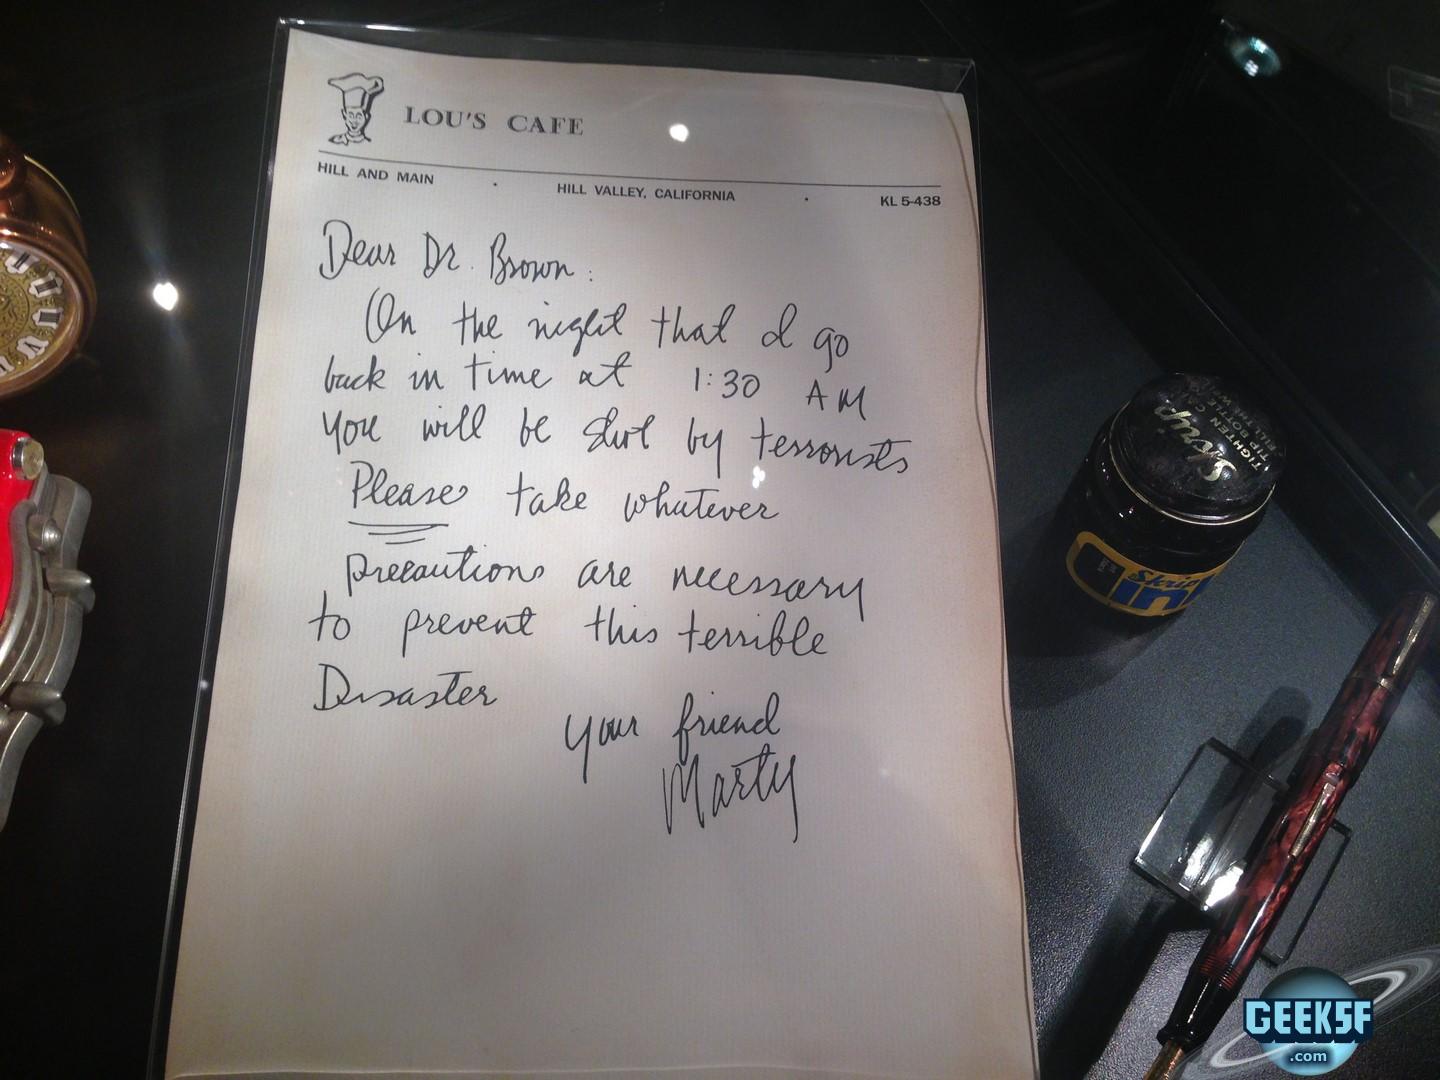 LOU'S CAFE
HILL AND MAIN · HILL VALLEY, CALIFORNIA · KL 5-438
Dear Dr. Brown:
On the night that I go
back in time at 1:30 AM
you will be shot by terrorists
Please take whatever
precautions are necessary
to prevent this terrible
Disaster
your friend
Marty
Skrip
TIGHTEN CAP
TIP BOTTLE
FILL THE WELL
Skrip
ink
GEEKSF
.com